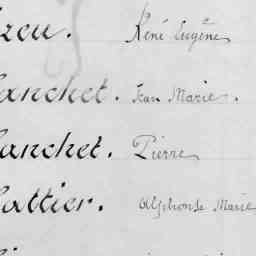 René Eugène
anchet. Jean Marie.
anchet. Pierre
attier. Alphonse Marie